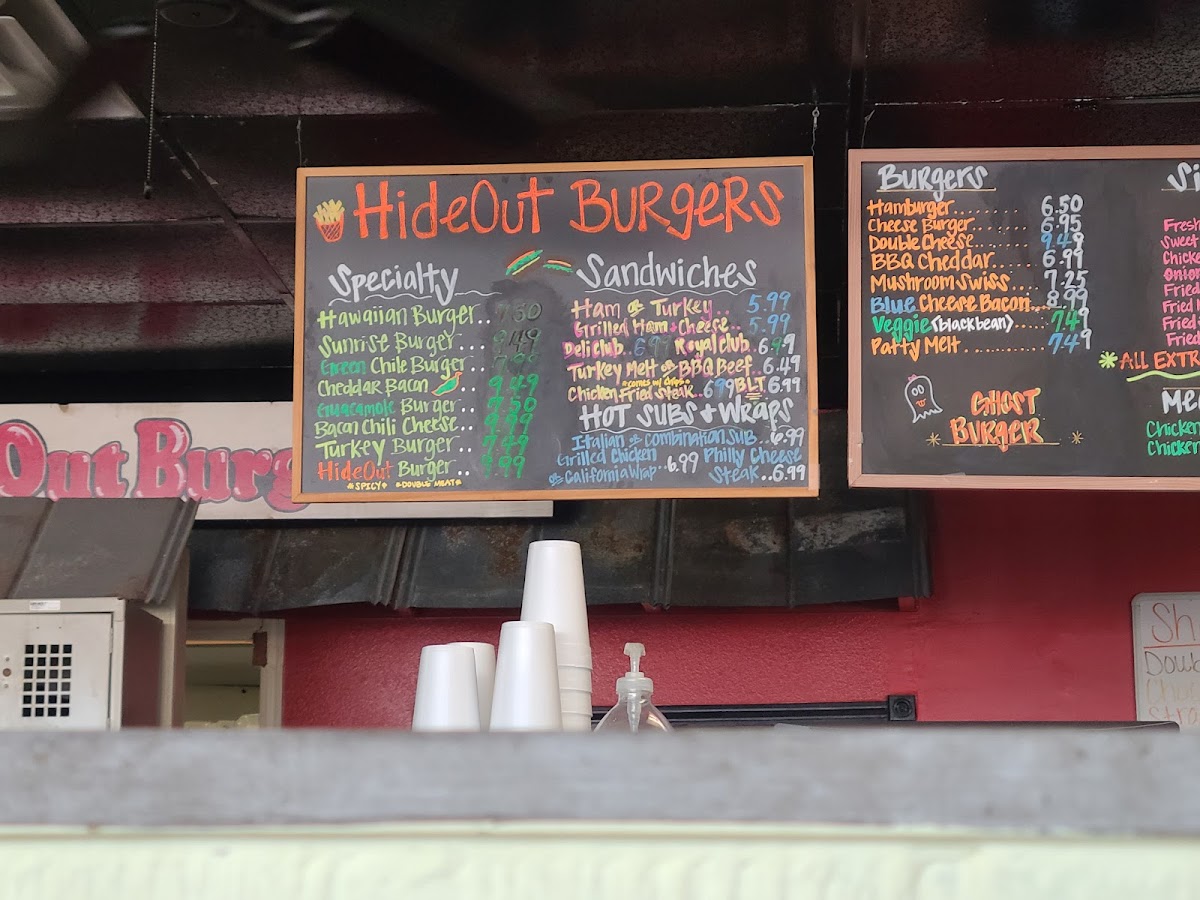 HideOut Burgers
Specialty
Hawaiian Burger.. 7.50
Sunrise Burger.. 9.49
Green Chile Burger
Cheddar Bacon 9.49
Guacamole Burger.. 9.50
Bacon Chili Cheese.. 9.99
Turkey Burger.. 7.49
HideOut Burger.. 9.99
*SPICY* *DOUBLE MEAT*
Sandwiches
Ham or Turkey.. 5.99
Grilled Ham + Cheese.. 5.99
Deli club.. 6.99 Royal club.. 6.99
Turkey Melt or BBQ Beef.. 6.49
*comes w/ chips*
Chicken Fried Steak.. 6.99 BLT 6.99
Hot Subs + Wraps
Italian or Combination Sub.. 6.99
Grilled Chicken
or California Wrap.. 6.99
Philly Cheese
Steak.. 6.99
Burgers
Hamburger.......... 6.50
Cheese Burger....... 6.95
Double Cheese....... 9.49
BBQ Cheddar..... 6.99
Mushroom Swiss.... 7.25
Blue Cheese Bacon.. 8.99
Veggie (black bean).... 7.49
Patty Melt ............ 7.49
Ghost
Burger
Si
Fresh
Sweet
Chicke
Onion
Fried
Fried
Fried
Fried
*ALL EXTR
Me
Chicken
Chicker
Out Burg
Sh
Doub
Cho
Stra